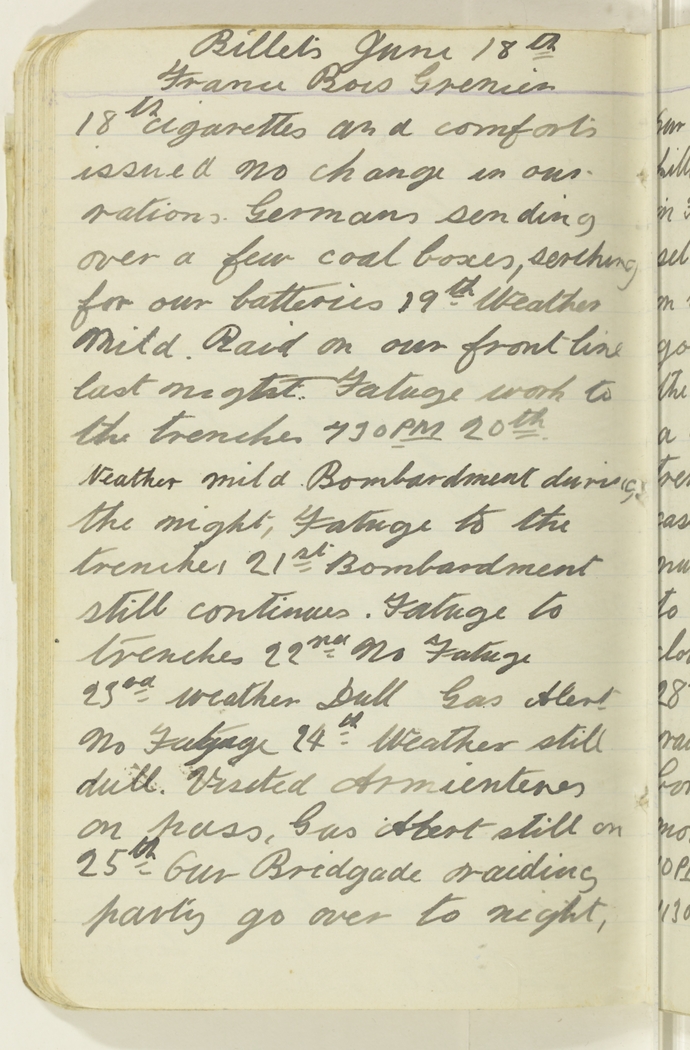 Billets June 18th
France Bois Grenier
18th cigarettes and comforts
issued no change in our
rations. Germans sending
over a few coal boxes, serching
for our batteries 19th Weather
Mild. Raid on our front line
last night. Fatuge work to
the trenches 730PM 20th
Weather mild. Bombardment during
the night, Fatuge to the
trenches 21st Bombardment
still continues. Fatuge to
trenches 22nd No Fatuge
23rd weather Dull Gas Alert
No Fatuge 24th Weather still
dull. Visited Armienteres
on pass, Gas Alert still on
25th Our Bridgade raiding
party go over to night,